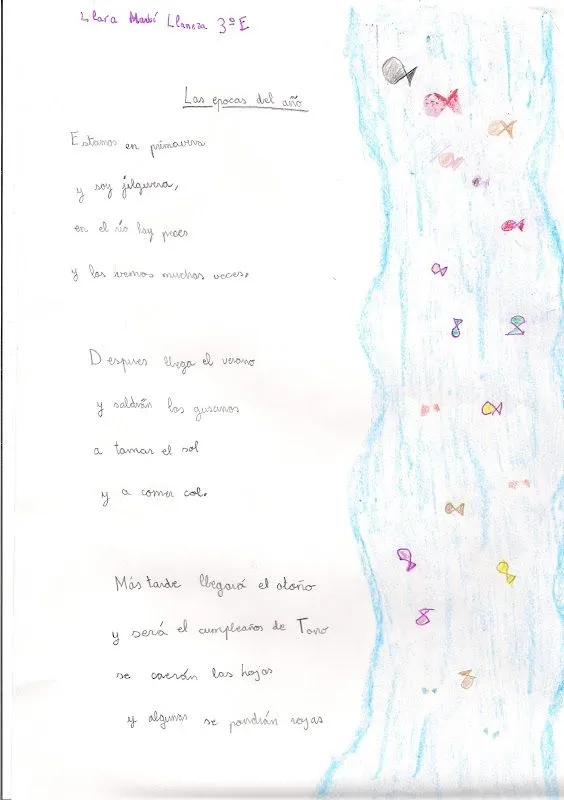 Llara Martí Llaneza 3º E
Las epocas del año
Estamos en primavera
y soy jilguera,
en el río hay peces
y los vemos muchas veces.
Despues llega el verano
y saldrán los gusanos
a tomar el sol
y a comer col.
Más tarde llegará el otoño
y será el cumpleaños de Toño
se caerán las hojas
y algunas se pondrán rojas